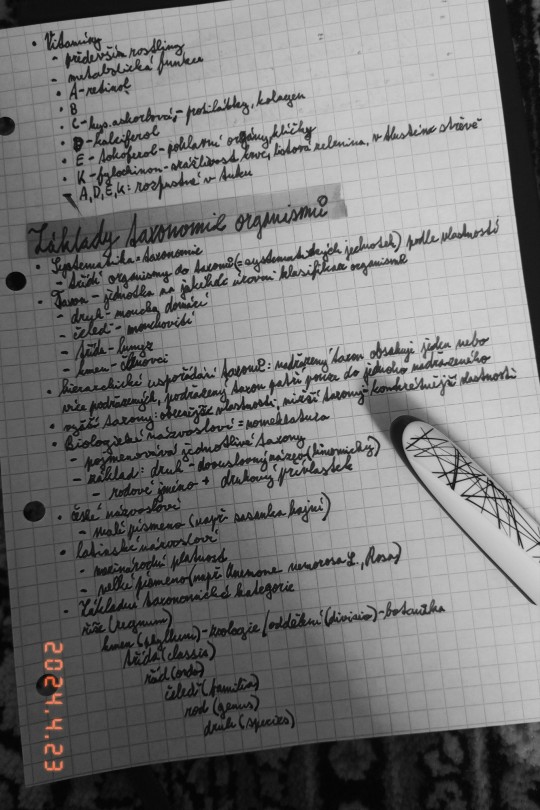 • Vitamíny
- především rostliny
- metabolická funkce
• A - retinol
• B
• C - kys. askorbová - protilátky, kolagen
• D - kalciferol
• E - tokoferol - pohlavní orgány, klíčky
• K - fylochinon - srážlivost krve, listová zelenina, v tlustém střevě
A, D, E, K: rozpustné v tuku
Základy taxonomie organismů
• Systematika = taxonomie
- třídí organismy do taxonů (= systematických jednotek) podle vlastností
• Taxon - jednotka na jakékoliv úrovni klasifikace organismů
- druh - moucha domácí
- čeleď - mouchovití
- třída - hmyz
- kmen - členovci
• hierarchické uspořádání taxonů: nadřazený taxon obsahuje jeden nebo
více podřazených, podřazený taxon patří pouze do jednoho nadřazeného
• vyšší taxony: obecnější vlastnosti, nižší taxony - konkrétnější vlastnosti
• Biologické názvosloví = nomeklatura
- pojmenovává jednotlivé taxony
- základ: druh - dvouslovný název (binomický)
- rodové jméno + druhový přívlastek
• české názvosloví
- malé písmeno (např. sasanka hajní)
• latinské názvosloví
- mezinárodní platnost
- velké písmeno (např. Anemone nemorosa L., Rosa)
• Základní taxonomické kategorie
říše (regnum)
kmen (phyllum) - zoologie / oddělení (divisio) - botanika
třída (classis)
řád (ordo)
čeleď (familia)
rod (genus)
druh (species)
2024.4.23